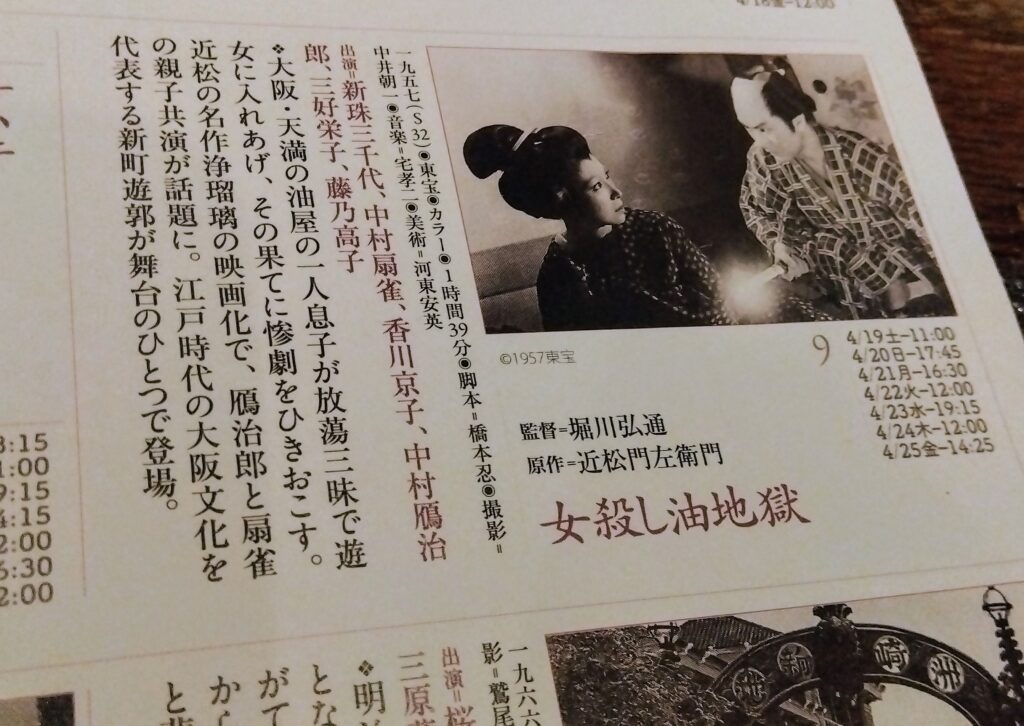 4/18金–12:00
9
4/19土–11:00
4/20日–17:45
4/21月–16:30
4/22火–12:00
4/23水–19:15
4/24木–12:00
4/25金–14:25
©1957東宝
監督=堀川弘通
原作=近松門左衛門
女殺し油地獄
一九五七(S32)◉東宝◉カラー◉1時間39分◉脚本=橋本忍◉撮影=
中井朝一◉音楽=宅孝二◉美術=河東安英
出演=新珠三千代、中村扇雀、香川京子、中村鴈治
郎、三好栄子、藤乃高子
❖大阪・天満の油屋の一人息子が放蕩三昧で遊
女に入れあげ、その果てに惨劇をひきおこす。
近松の名作浄瑠璃の映画化で、鴈治郎と扇雀
の親子共演が話題に。江戸時代の大阪文化を
代表する新町遊郭が舞台のひとつで登場。
:15
1:00
9:15
4:15
2:00
:30
2:00
一九六六
影=鷲尾
出演=桜
三原
❖明
とな
がて
から
と